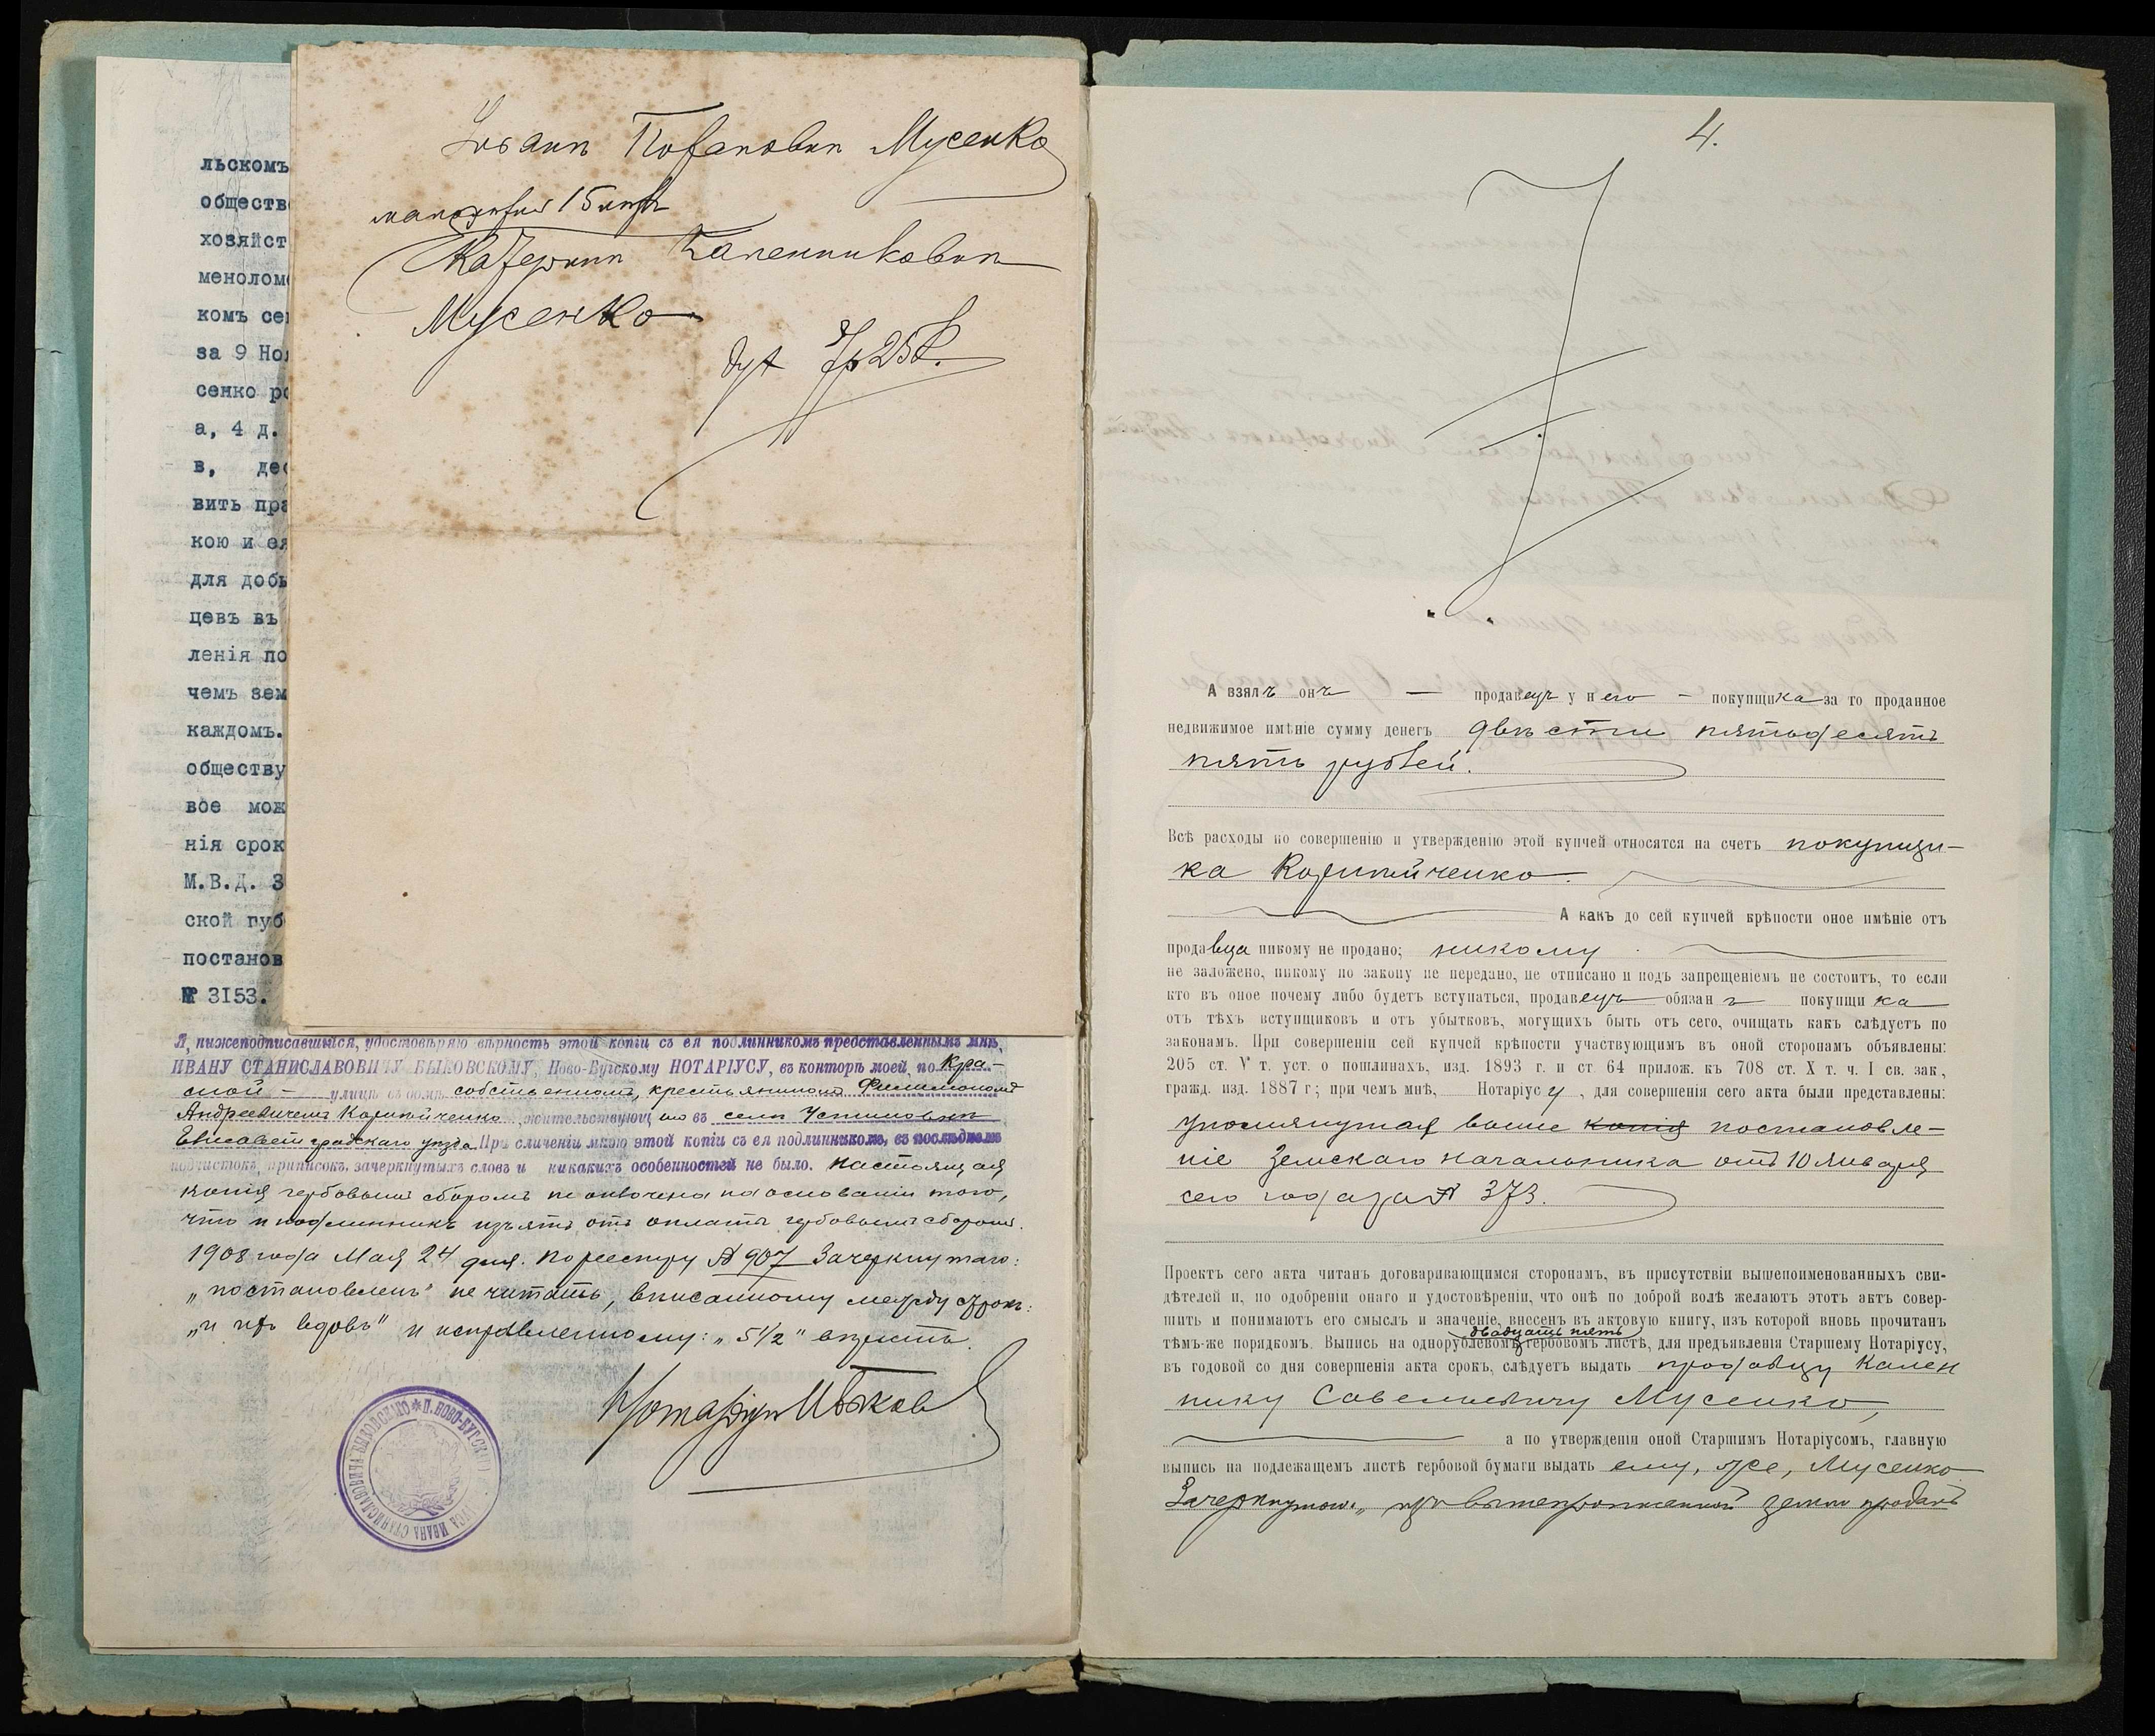 льскомъ
обществ
хозяйст
менолом
комъ се
за 9 Но
сенко р
а, 4 д.
в, де
вить пра
кою и ея
для добы
цевъ въ
ленія по
чемъ зем
каждомъ.
обществу
вое мож
нія срок
М.В.Д. З
ской губ
постанов
№ 3153.
Мусенко
15
Мусенко
7р 25к.
Я, нижеподписавшійся, удостовѣряю вѣрность этой копіи съ ея подлинникомъ представленнымъ мнѣ,
ИВАНУ СТАНИСЛАВОВИЧУ БЫКОВСКОМУ, Ново-Бугскому НОТАРІУСУ, въ конторѣ моей, по Кра-
сной – улицѣ въ домѣ собственномъ, крестьяниномъ Филимономъ
Андреевичемъ Корнѣйченко, жительствующимъ въ селѣ Устиновкѣ
Елисаветградскаго уѣзда. При сличеніи мною этой копіи съ ея подлинникомъ, въ послѣднемъ
подчистокъ, приписокъ, зачеркнутыхъ словъ и никакихъ особенностей не было. Настоящая
копія гербовымъ сборомъ не оплочена на основаніи того,
что и подлинникъ изъятъ отъ оплаты гербовымъ сборомъ.
1908 года Мая 24 дня. По реестру № 907 Зачеркнутаго:
„постановленъ" не читать, вписанному между строкъ:
„и изъ вдовъ" и исправленному: „5½" вѣрить.
Нотаріусъ И Быков
4.
А взялъ онъ — продавецъ у него – покупщика за то проданное
недвижимое имѣніе сумму денегъ двѣсти пятьдесятъ
пять рублей.
Всѣ расходы по совершенію и утвержденію этой купчей относятся на счетъ покупщи-
ка Корнѣйченко.
А какъ до сей купчей крѣпости оное имѣніе отъ
продавца никому не продано; никому
не заложено, никому по закону не передано, не отписано и подъ запрещеніемъ не состоитъ, то если
кто въ оное почему либо будетъ вступаться, продавецъ обязанъ покупщика
отъ тѣхъ вступщиковъ и отъ убытковъ, могущихъ быть отъ сего, очищать какъ слѣдуетъ по
законамъ. При совершеніи сей купчей крѣпости участвующимъ въ оной сторонамъ объявлены:
205 ст. V т. уст. о пошлинахъ, изд. 1893 г. и ст 64 прилож. къ 708 ст. X т. ч. I св. зак.,
гражд. изд. 1887 г; при чемъ мнѣ, Нотаріусу, для совершенія сего акта были представлены:
упомянутая выше копія постановле-
ніе Земскаго Начальника отъ 10 Января
сего года за № 373.
Проектъ сего акта читанъ договаривающимся сторонамъ, въ присутствіи вышепоименованныхъ сви-
дѣтелей и, по одобреніи онаго и удостовѣреніи, что онѣ по доброй волѣ желаютъ этотъ актъ совер-
шить и понимаютъ его смыслъ и значеніе, внесенъ въ актовую книгу, изъ которой вновь прочитанъ
двадцать пять
тѣмъ-же порядкомъ. Выпись на однорублевомъ гербовомъ листѣ, для предъявленія Старшему Нотаріусу,
въ годовой со дня совершенія акта срокъ, слѣдуетъ выдать продавцу Кален
нику Савельевичу Мусенко,
а по утвержденіи оной Старшимъ Нотаріусомъ, главную
выпись на подлежащемъ листѣ гербовой бумаги выдать ему, же, Мусенко
Зачеркнутое: „ вышепрописанной земли продавъ